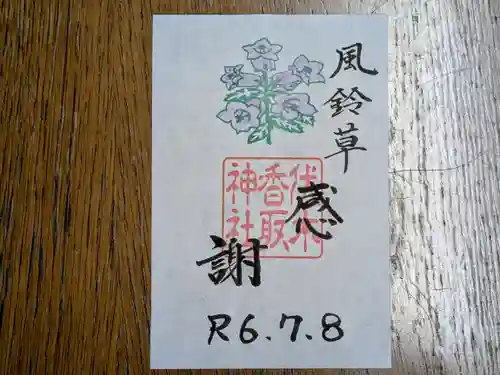 風鈴草
感謝
代木
香取
神社
R6.7.8